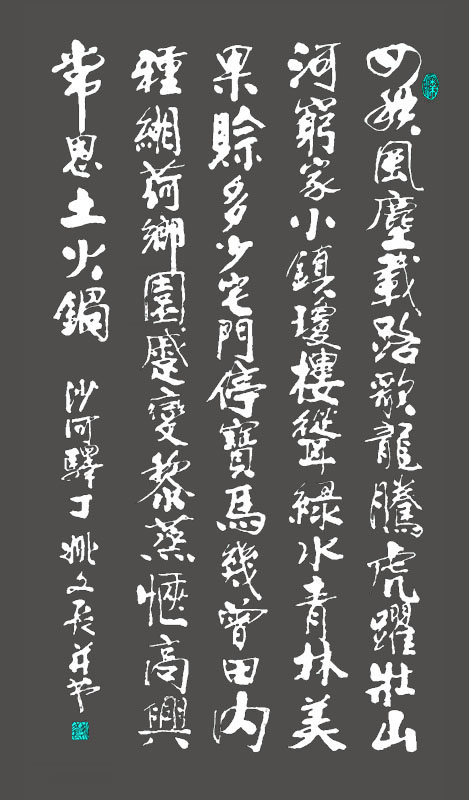 風塵載路歌龍騰虎躍壯山
河窮家小鎮瓊樓聳綠水青林美
果賒多少宅門停寶馬幾曾田內
種緗荷鄉園蹙變黎蒸愜高興
常思土火鍋
沙河驛丁姚文長并书